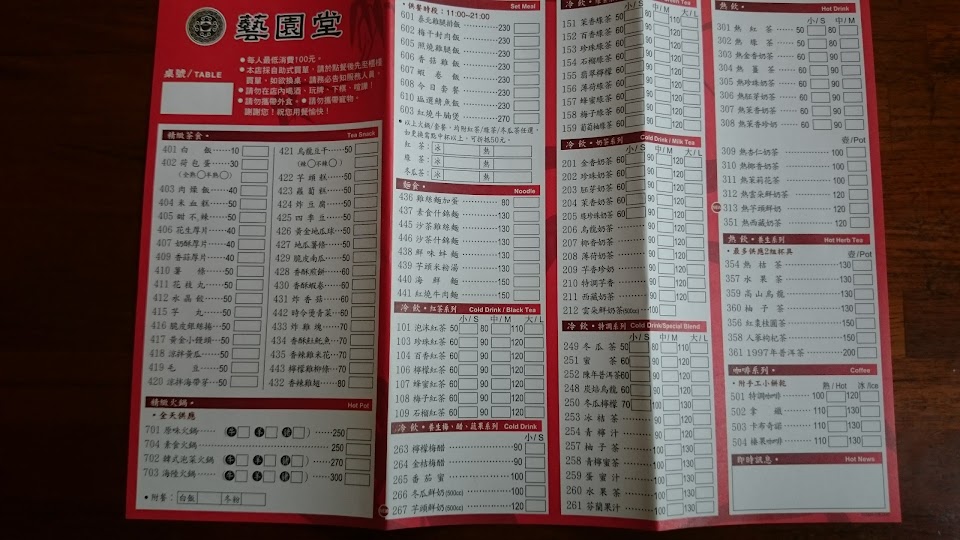 藝園堂
桌號/TABLE
●每人最低消費100元。
●本店採自助式買單,請於點餐後先至櫃檯
買單,如欲換桌,請務必告知服務人員。
●請勿在店內喝酒、玩牌、下棋、喧譁!
●請勿攜帶外食。●請勿攜帶寵物。
謝謝您!祝您用餐愉快!
精緻茶食• Tea Snack
401 白飯 10
402 荷包蛋 30
(○全熟○半熟)
403 肉燥飯 40
404 米血糕 50
405 甜不辣 50
406 花生厚片 40
407 奶酥厚片 40
409 香蒜厚片 40
410 薯條 50
411 花枝丸 50
412 水晶餃 50
415 芋丸 50
416 脆皮銀絲捲 50
417 黃金小饅頭 50
418 涼拌黃瓜 50
419 毛豆 50
420 涼拌海帶芽 50
421 烏龍豆干 50
(辣○不辣○)
422 芋頭糕 50
423 蘿蔔糕 50
424 炸豆腐 50
425 四季豆 50
426 黃金地瓜球 50
427 地瓜薯條 50
429 脆皮南瓜 50
428 香酥煎餅 60
430 香酥蝦卷 60
431 炸香菇 60
432 時令燙青菜 60
433 炸雞塊 70
434 香酥魟魠魚 70
435 香辣雞米花 70
443 檸檬雞柳條 70
432 香辣雞翅 80
精緻火鍋• Hot Pot
•全天供應
701 原味火鍋 250
704 素食火鍋 250
702 韓式泡菜火鍋 270
703 海陸火鍋 300
•附餐: 白飯 冬粉
Set Meal
•供餐時段:11:00~21:00
601 泰北雞腿排飯 230
602 梅干封肉飯 230
605 照燒雞腿飯 230
606 香菇雞飯 230
607 蝦卷飯 230
608 今日套餐 230
610 鹽選鯖魚飯 230
603 紅燒牛腩煲 230
●以上火鍋/套餐,均附紅茶/綠茶/冬瓜茶任選,
如更換寬點中杯以上,可折抵50元。
紅茶: 冰 熱
綠茶: 冰 熱
冬瓜茶: 冰
麵食• Noodle
436 雞絲麵加蛋 80
437 素食什錦麵 130
445 沙茶雞絲麵 130
446 沙茶什錦麵 130
438 鮮味蚌麵 130
439 芋頭米粉湯 130
440 海鮮麵 150
441 紅燒牛肉麵 150
冷飲•紅茶系列 Cold Drink / Black Tea
小/S 中/M 大/L
101 泡沫紅茶 50 80 110
103 珍珠紅茶 60 90 120
104 百香紅茶 60 90 120
106 檸檬紅茶 60 90 120
107 蜂蜜紅茶 60 90 120
108 梅子紅茶 60 90 120
109 石榴紅茶 60 90 120
冷飲•養生梅•醋•蔬果系列 Cold Drink
小/S
263 檸檬梅醋 90
264 金桔梅醋 90
265 番茄蜜 100
266 冬瓜鮮奶(500cc) 100
267 芋頭鮮奶(500cc) 120
冷飲• Green Tea
小/S 中/M 大/L
151 茉香綠茶 50 80 110
152 百香綠茶 60 90 120
153 珍珠綠茶 60 90 120
154 石榴綠茶 60 90 120
155 翡翠檸檬 60 90 120
156 薄荷綠茶 60 90 120
157 蜂蜜綠茶 60 90 120
158 梅子綠茶 60 90 120
159 葡萄柚綠茶 60 90 120
冷飲•奶茶系列 Cold Drink / Milk Tea
小/S 中/M 大/L
201 金香奶茶 60 90 120
202 珍珠奶茶 60 90 120
203 胚芽奶茶 60 90 120
204 茉香奶茶 60 90 120
205 綠珍珠奶茶 60 90 120
206 烏龍奶茶 60 90 120
207 椰香奶茶 60 90 120
208 薄荷奶茶 60 90 120
209 芋香奶茶 60 90 120
210 特調芋香 60 90 120
211 西藏奶茶 60 90 120
212 雲朵鮮奶茶(500cc) 90
冷飲•特調系列 Cold Drink/Special Blend
小/S 中/M 大/L
249 冬瓜茶 50 80 110
251 蜜茶 60 90 120
252 陳年普洱茶 60 90 120
248 炭焙烏龍 60 90 120
250 冬瓜檸檬 70 100 130
253 冰桔茶 100 130
254 青檸汁 100 130
257 柚子茶 100 130
258 青檸蜜茶 100 130
259 蛋蜜汁 100 130
260 水果茶 100 130
261 芬蘭果汁 100 130
熱飲• Hot Drink
小/S 中/M
301 熱紅茶 50 80
302 熱綠茶 50 80
303 熱金香奶茶 60 90
304 熱薑茶 60 90
305 熱珍珠奶茶 60 90
306 熱胚芽奶茶 60 90
307 熱茉香奶茶 60 90
308 熱茉香珍奶 60 90
壺/Pot
309 熱杏仁奶茶 100
310 熱椰香奶茶 100
311 熱茉莉花茶 100
312 熱雲朵鮮奶茶 120
313 熱芋頭鮮奶 120
351 熱西藏奶茶 120
熱飲•養生系列 Hot Herb Tea
•最多供應2組杯具 壺/Pot
354 熱桔茶 130
357 水果茶 130
359 高山烏龍 130
360 柚子茶 130
356 紅棗桂圓茶 150
358 人蔘枸杞茶 150
361 1997年普洱茶 200
咖啡系列• Coffee
•附手工小餅乾 熱/Hot 冰/Ice
501 特調咖啡 100 120
502 拿鐵 110 130
503 卡布奇諾 110 130
504 榛果咖啡 110 130
即時訊息• Hot News